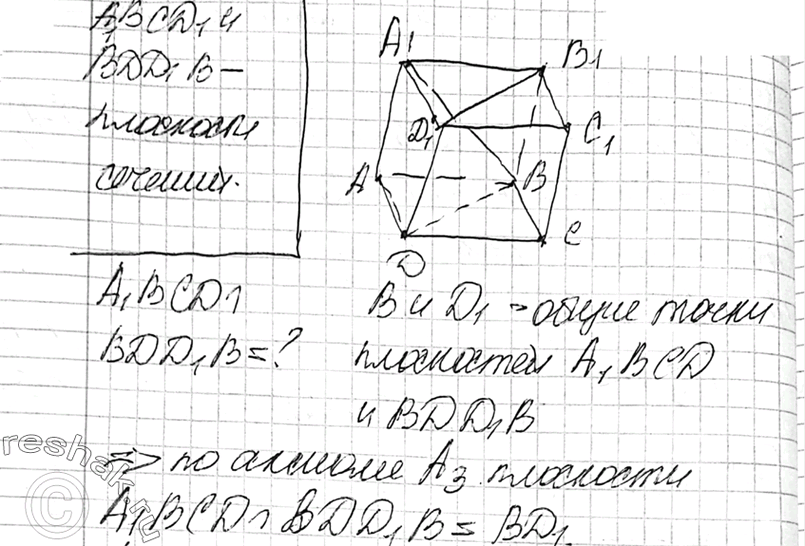 A₁BCD₁ и
BDD₁B –
плоскости
сечений.
A₁
B₁
D₁
C₁
A
B
D
C
A₁BCD ∩
BDD₁B = ?
B и D₁ – общие точки
плоскостей A₁BCD
и BDD₁B
=> по аксиоме A₃ плоскости
A₁BCD ∩ BDD₁B = BD₁.
reshak.ru
©